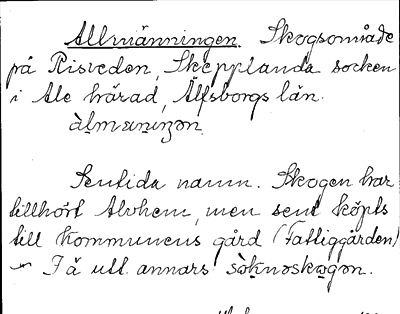 Allmänningen. Skogsområde
på Risveden, Skepplanda socken
i Ale härad, Älfsborgs län.
àlmæniŋən.
Sentida namn. Skogen har
tillhört Alvhem, men sent köpts
till kommunens gård (Fattiggården)
Få utt. annars sòknəskogən.